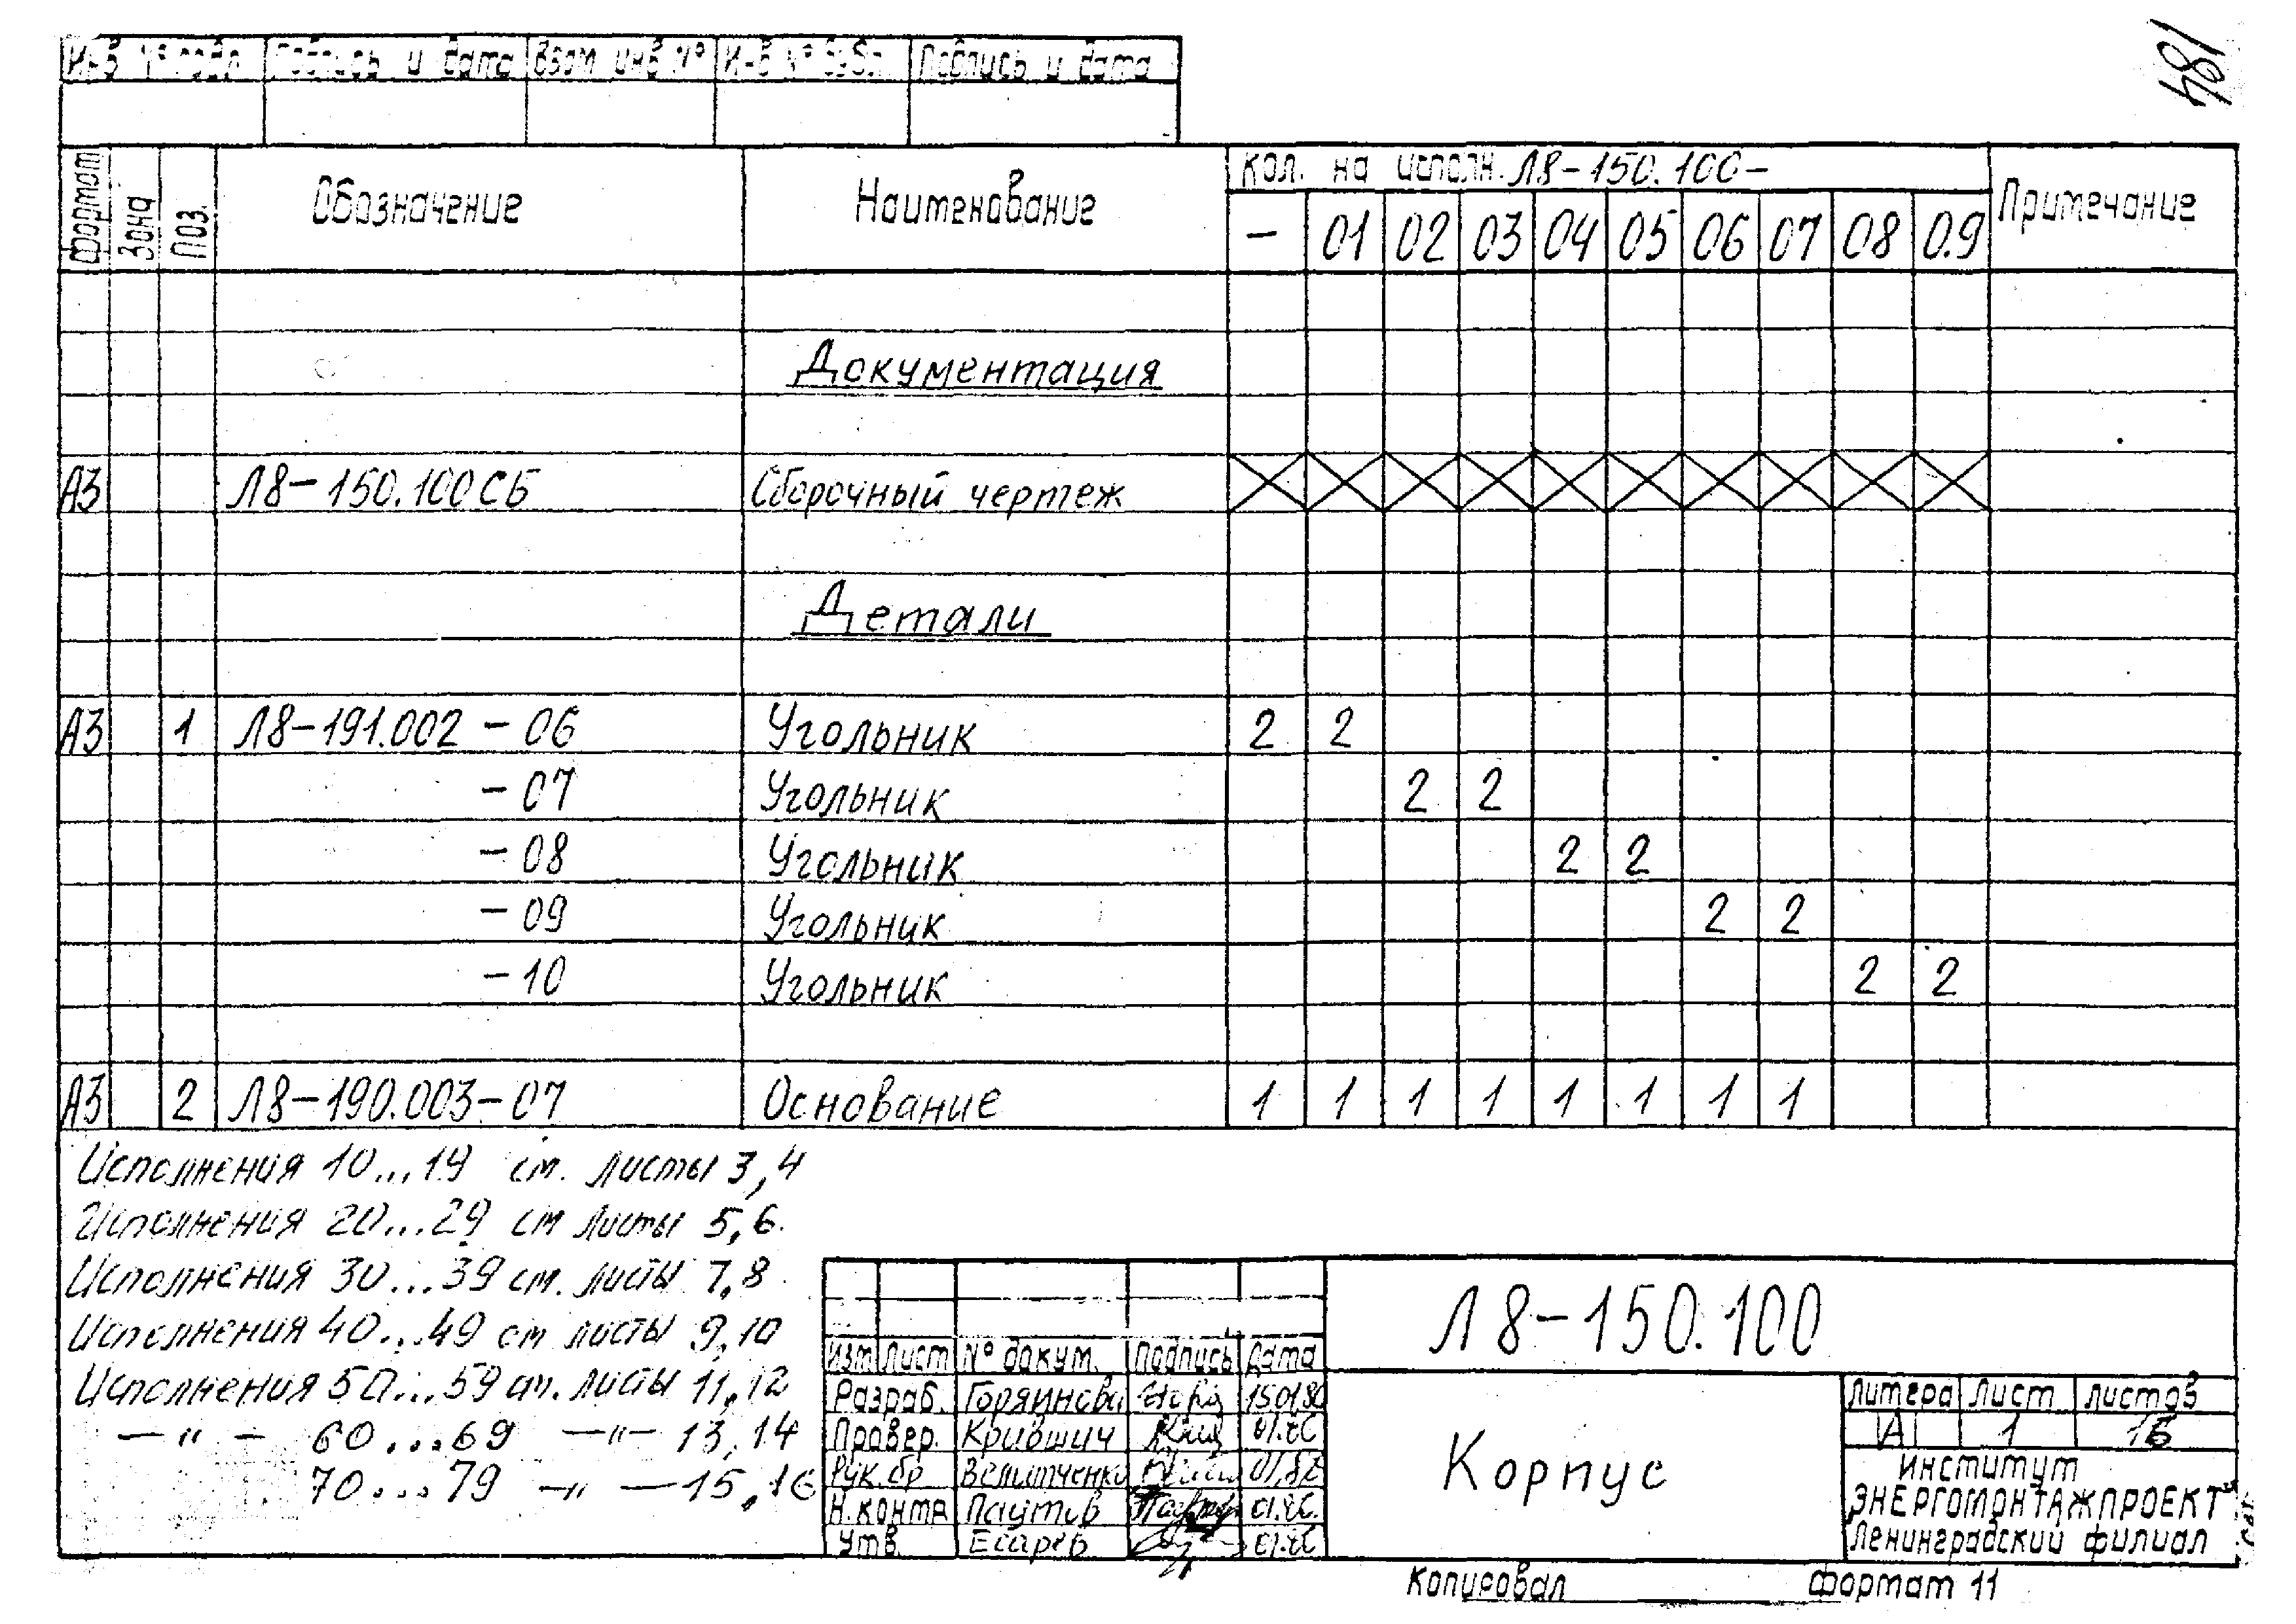 184
Инв № подл Подпись и дата Взам инв № Инв № дубл Подпись и дата
Формат Зона Поз. Обозначение Наименование Кол. на исполн. Л8-150.100- Примечание
- 01 02 03 04 05 06 07 08 0.9
Документация
А3 Л8-150.100СБ Сборочный чертеж
Детали
А3 1 Л8-191.002 - 06 Угольник 2 2
- 07 Угольник 2 2
- 08 Угольник 2 2
- 09 Угольник 2 2
- 10 Угольник 2 2
А3 2 Л8-190.003-07 Основание 1 1 1 1 1 1 1 1
Исполнения 10...19 см. листы 3,4
Исполнения 20...29 см листы 5,6.
Исполнения 30...39 см. листы 7,8
Исполнения 40...49 см листы 9,10
Исполнения 50...59 см. листы 11,12
—"— 60...69 —"— 13,14
70...79 —"— 15,16
Л8-150.100
Изм Лист № докум. Подпись Дата
Разраб. Горяинова 150180
Провер. Крившич
Рук.бр
Н.контр Паутов
Утв. Есарев
Корпус
Литера Лист Листов
А 1 16
Институт
"ЭНЕРГОМОНТАЖПРОЕКТ"
Ленинградский филиал
Копировал Формат 11